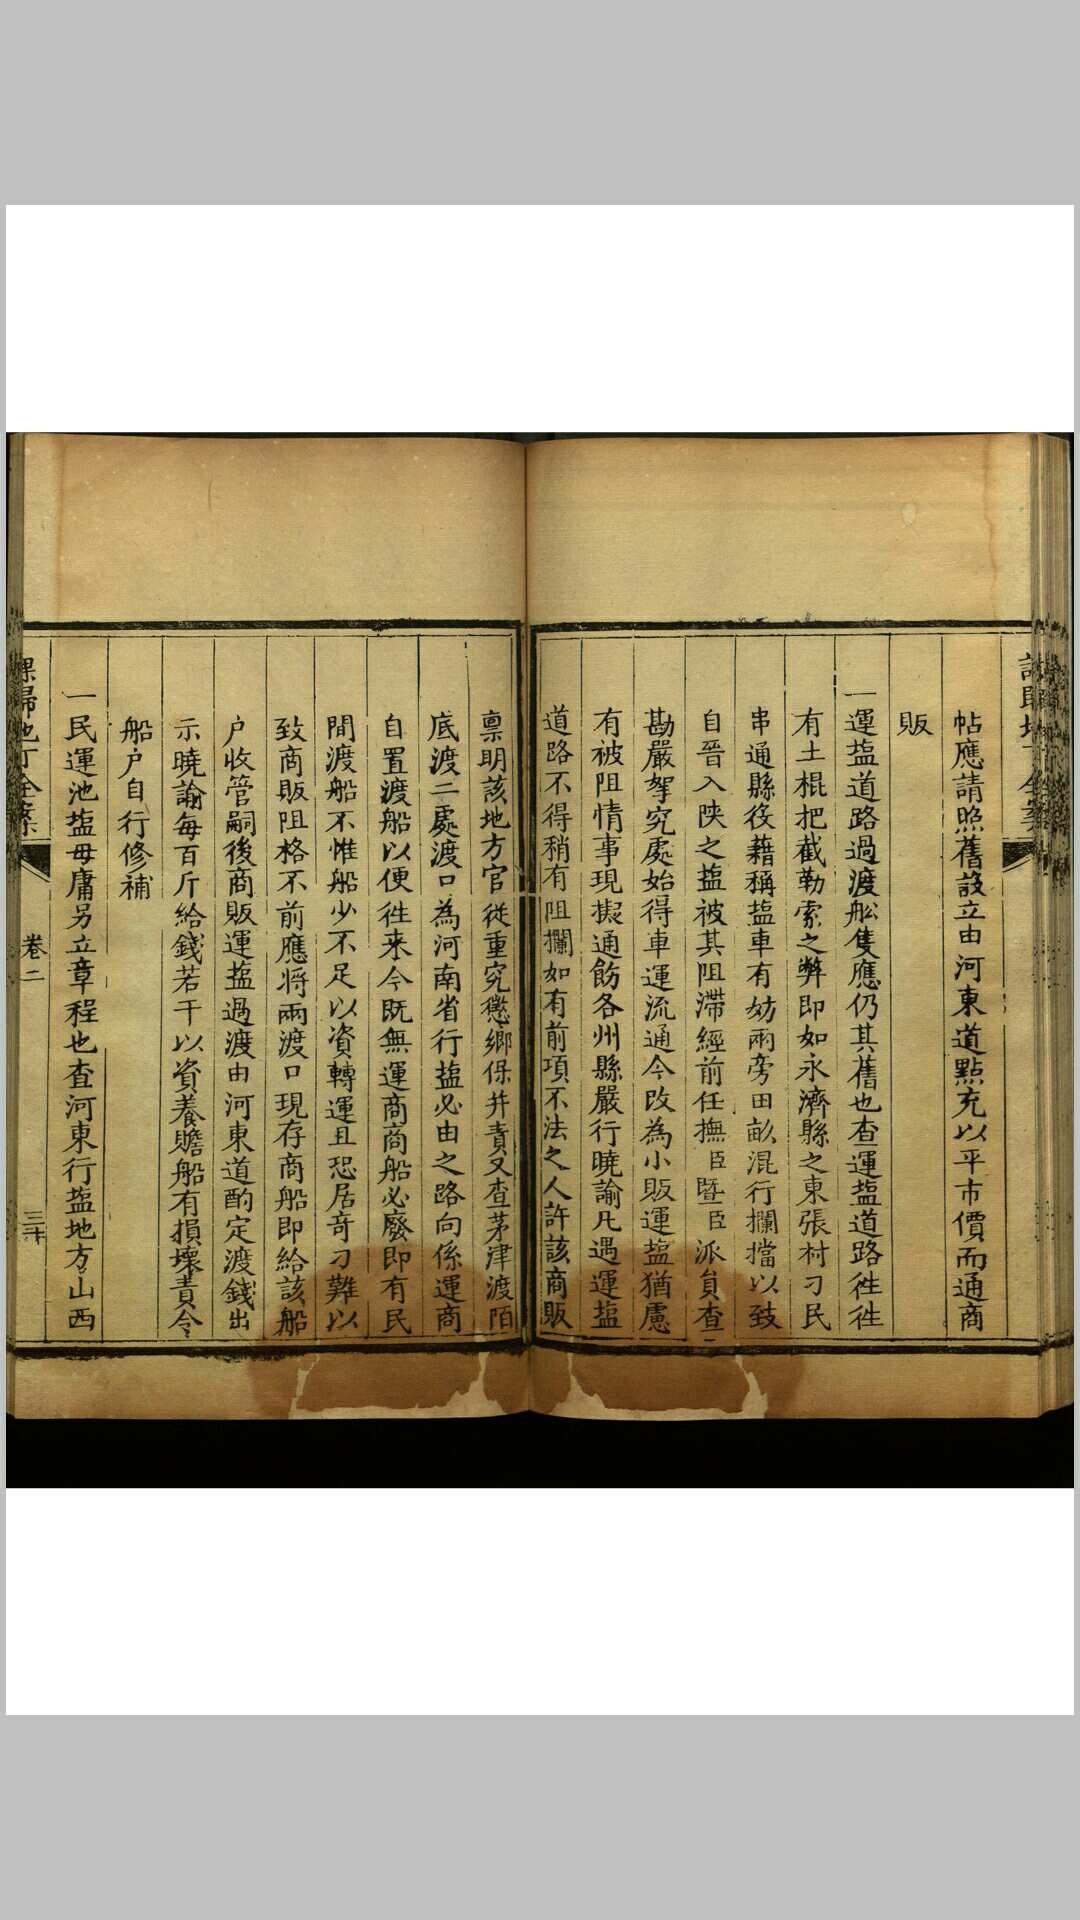 帖應請照舊設立由河東道點充以平市價而通商
販
一運塩道路過渡船隻應仍其舊也查運塩道路徃徃
有土棍把截勒索之弊即如永濟縣之東張村刁民
串通縣役藉稱塩車有妨兩旁田畝混行攔擋以致
自晉入陜之塩被其阻滯經前任撫臣暨臣派員查
勘嚴拏究處始得車運流通今改為小販運塩猶慮
有被阻情事現擬通飭各州縣嚴行曉諭凡遇運塩
道路不得稍有阻攔如有前項不法之人許該商販
稟明該地方官從重究懲鄉保并責又查茅津渡陌
底渡二處渡口為河南省行塩必由之路向係運商
自置渡船以便徃来今既無運商商船必廢即有民
間渡船不惟船少不足以資轉運且恐居奇刁難以
致商販阻格不前應将兩渡口現存商船即給該船
户收管嗣後商販運塩過渡由河東道酌定渡錢出
示曉諭每百斤給錢若干以資養贍船有損壞責令
船户自行修補
一民運池塩毋庸另立章程也查河東行塩地方山西
課歸地丁全案
卷二
三十